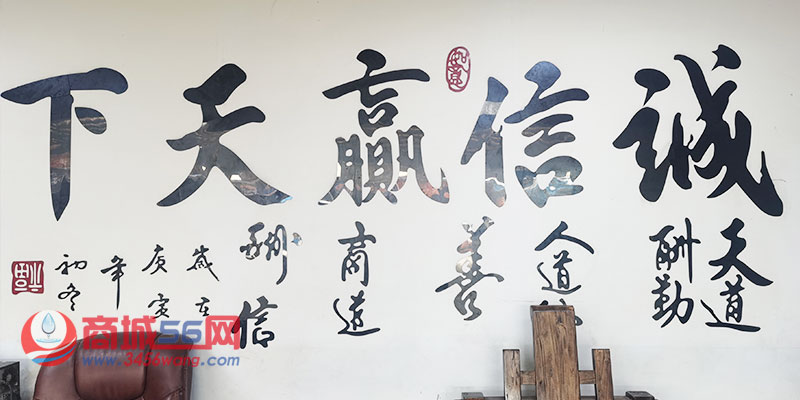 诚信贏天下
如意
天道
酬勤
人道
善
商道
酬信
歲在
庚寅
年
初冬
商城56网
www.3456wang.com